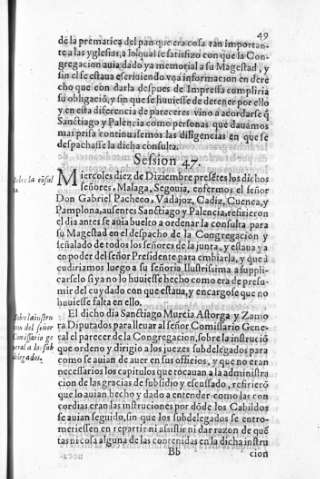 49
de la prematica del pan que era cosa tan importan-
te a las yglesias, a lo qual se satisfizo con que la Con-
gregacion auia dado ya memorial a su Magestad, y
sin el se estaua escriuiendo vna informacion en dere
cho que con darla despues de Impressa cumpliria
su obligaciō, y sin que se huuiesse de detener por ello
y en esta diferencia de pareceres vino a acordarse q̄
Sanctiago y Palencia como personas que dauamos
mas prisa continuassemos las diligencias en que se
despachasse la dicha consulta.
Session 47.
Sobre la cōsul
ta
Miercoles diez de Diziembre presētes los dichos
señores, Malaga, Segouia, enfermos el señor
Don Gabriel Pacheco, Vadajoz, Cadiz, Cuenca, y
Pamplona, ausentes Sanctiago y Palencia, refirieron
el dia antes se auia buelto a ordenar la consulta para
su Magestad en el despacho de la Congregacion y
señalado de todos los señores de la junta, y estaua ya
en poder del señor Presidente para embiarla, y que a
cudiriamos luego a su señoria Ilustrissima a suppli-
carselo si ya no lo huuiesse hecho como era de presu-
mir del cuydado con que estaua, y encargose que no
huuiesse falta en ello.
Sobre la instru
cion del señor
Comissario ge
neral a los sub
delegados.
El dicho dia Sanctiago Murcia Astorga y Zamo
ra Diputados para lleuar al señor Comissario Gene-
ral el parecer de la Congregacion, sobre la instruciō
que ordeno y dirigio a los juezes subdelegados para
como se auian de auer en sus officios, y que no eran
necessarios los capitulos que tocauan a la administra
cion de las gracias de subsidio y escussado, refirierō
que lo auian hecho y dado a entender como las con
cordias eran las instruciones por dōde los Cabildos
se auian seguido, sin que los subdelegados se entro-
metiessen en repartir ni assistir ni dar razon de que
tasni cosa alguna de las contenidas en la dicha instru
Bb
cion